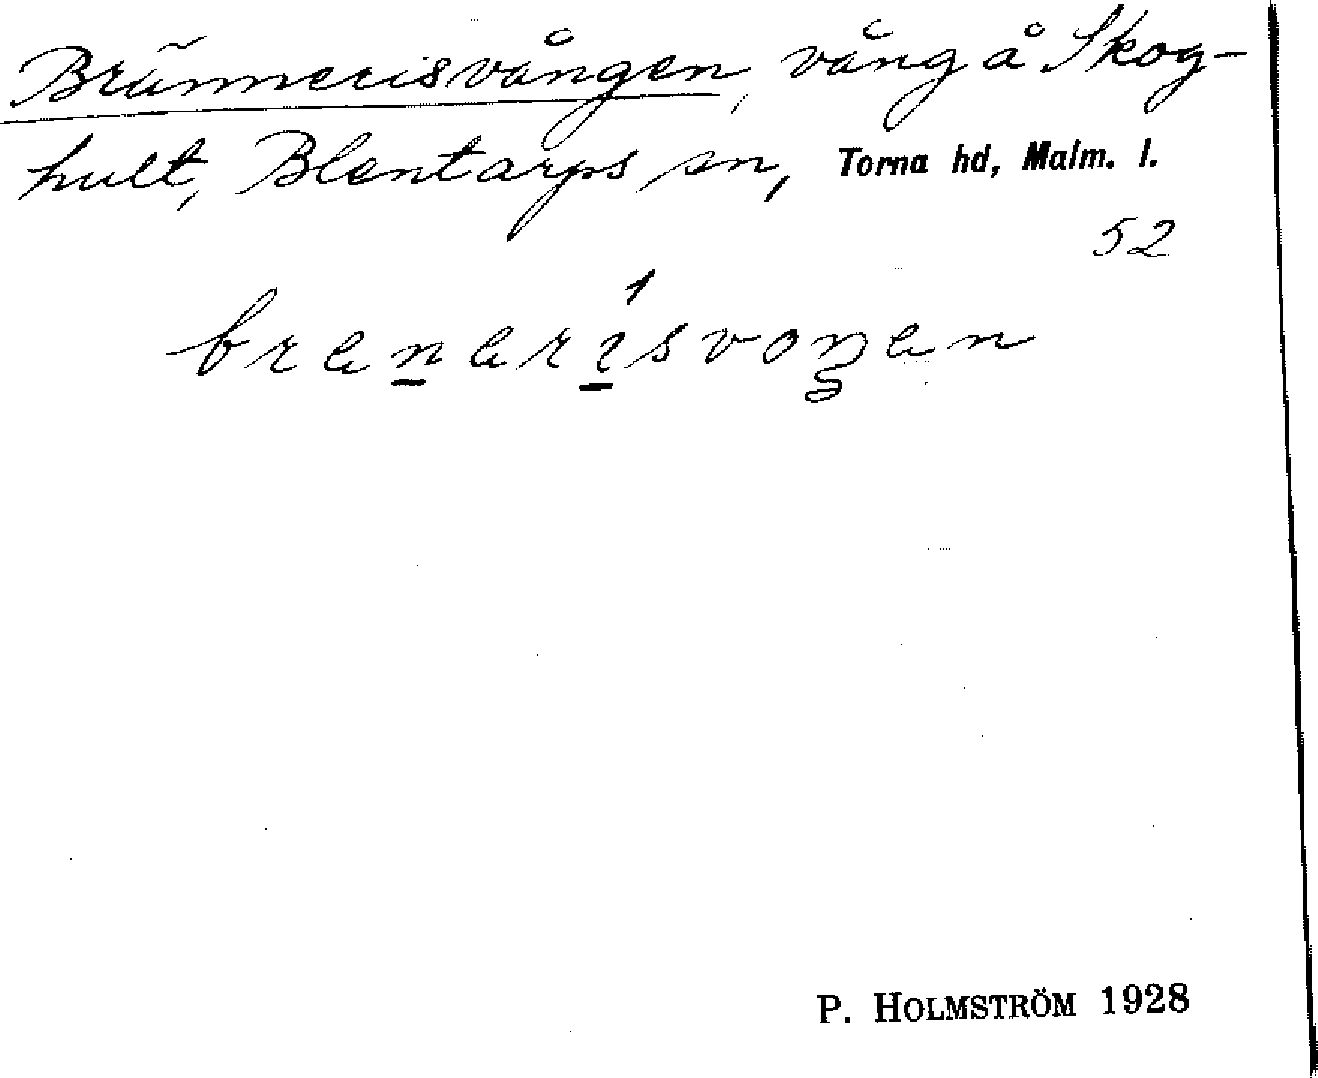 Brännerisvången, vång å Skog-
hult, Blentarps sn, Torna hd, Malm. l.
52
P. HOLMSTRÖM 1928